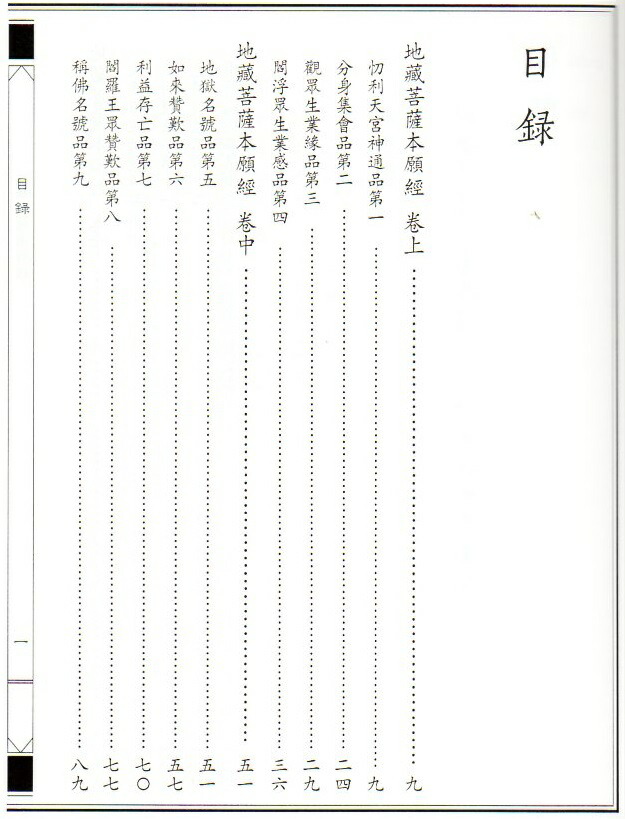 目錄
地藏菩薩本願經 卷上……九
忉利天宮神通品第一……九
分身集會品第二……二四
觀眾生業緣品第三……二九
閻浮眾生業感品第四……三六
地藏菩薩本願經 卷中……五一
地獄名號品第五……五一
如來贊歎品第六……五七
利益存亡品第七……七〇
閻羅王眾贊歎品第八……七七
稱佛名號品第九……八九
目錄
一